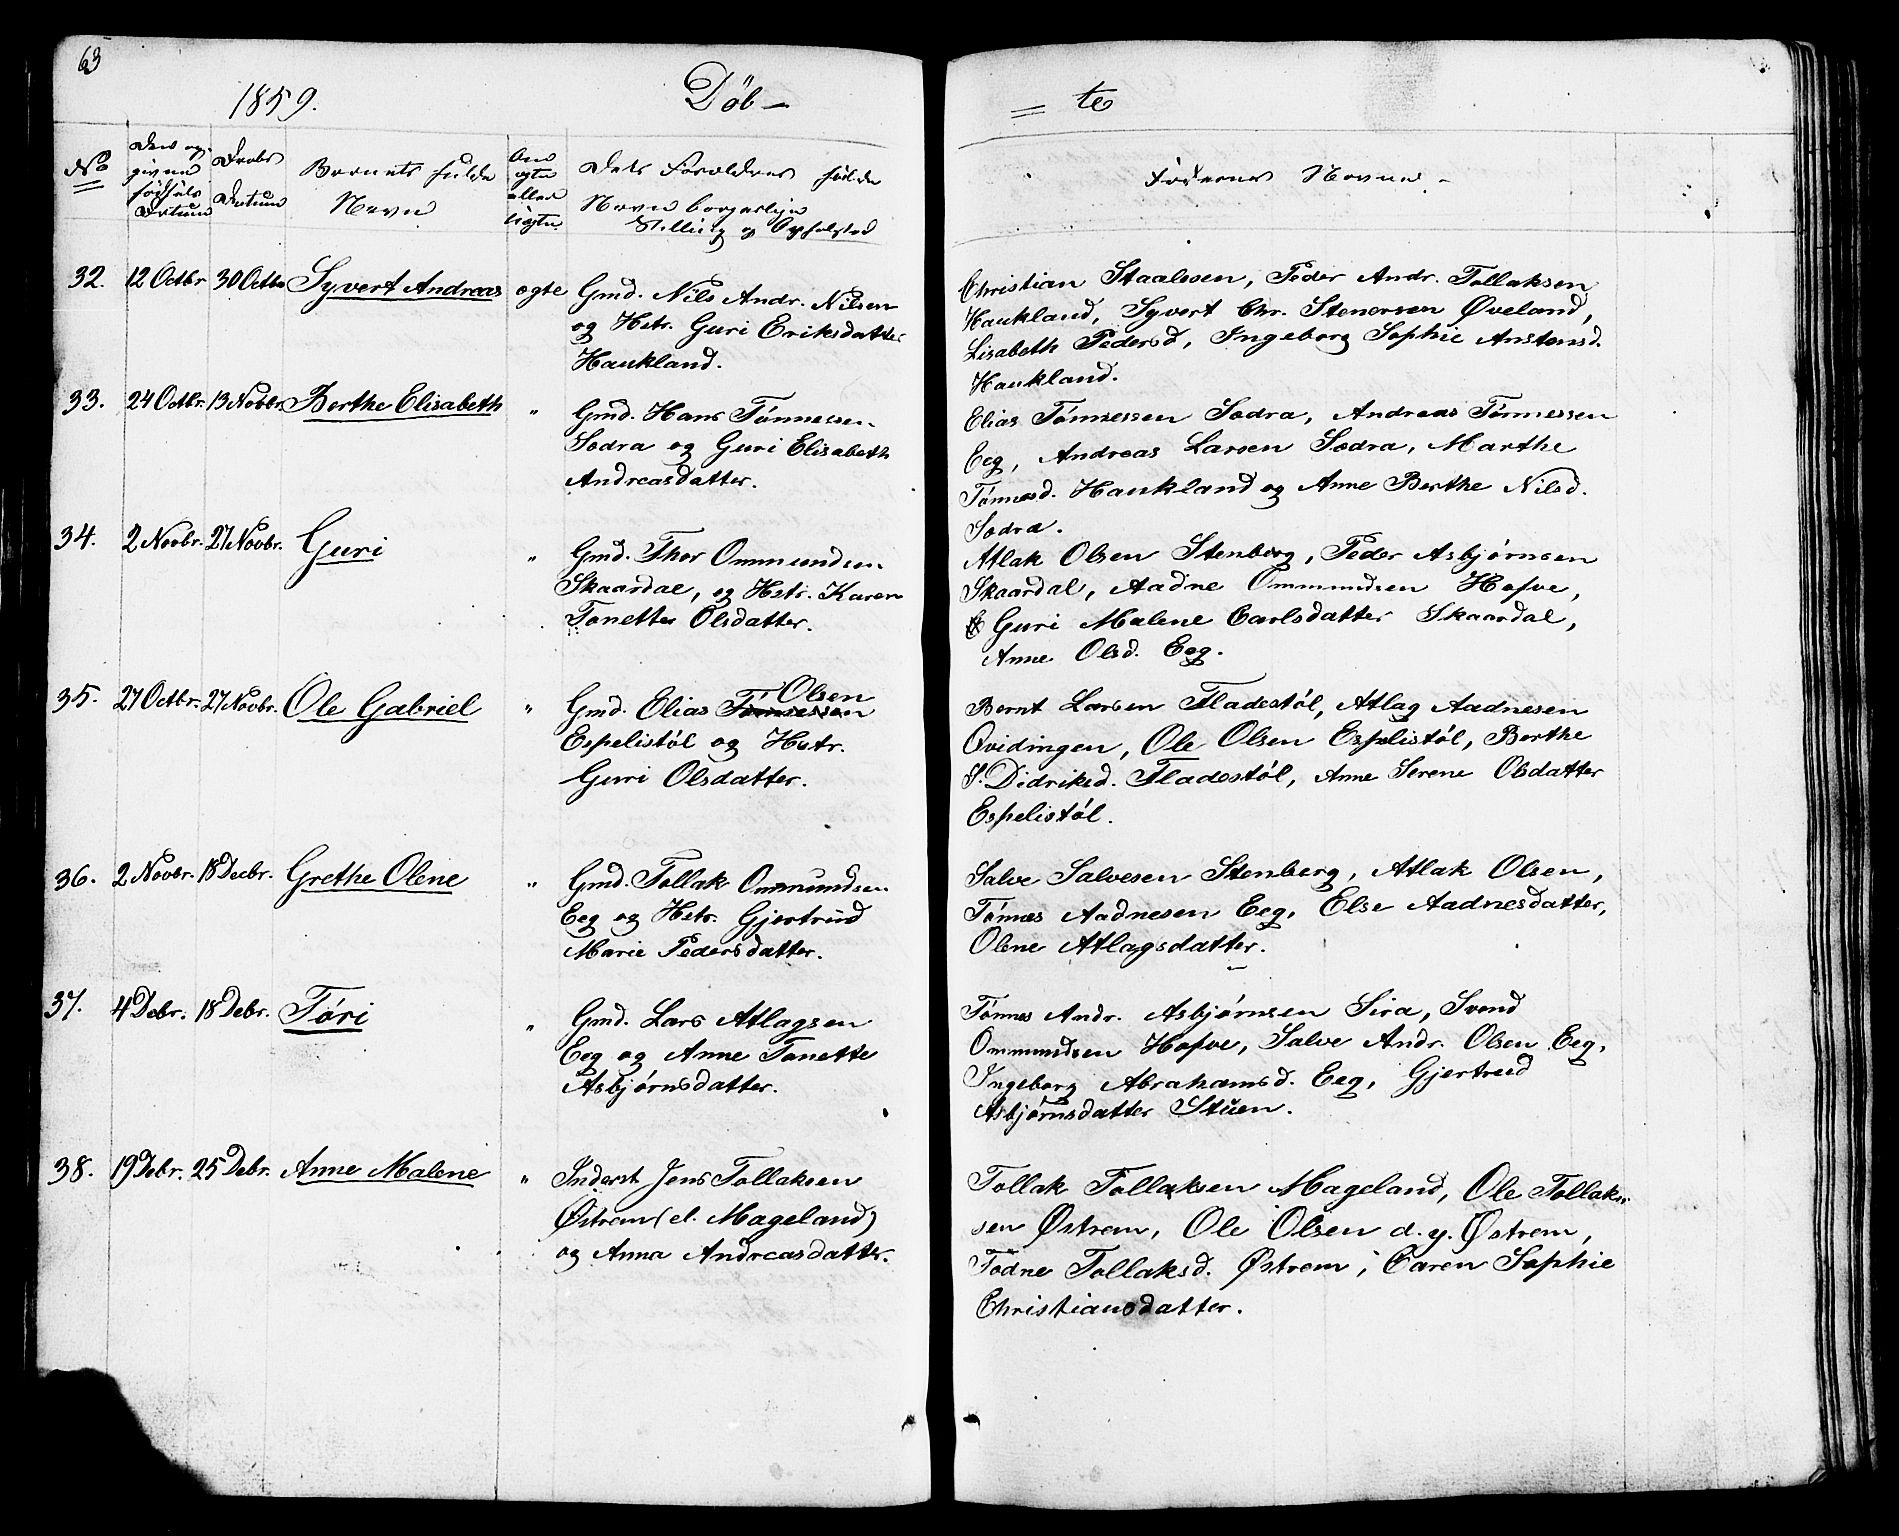 63
1859.
Døb-
= te
No
Den op-
givne
fødsels
Datum
Daabs
Datum
Barnets fulde
Navn
Om
ægte
eller
uægte
Dets Forældres fulde
Navn borgerlige
Stilling og Opholsted
Faddernes Navne -
32. 12 Octbr 30 Octbr Syvert Andreas ægte
Gmd. Nils Andr. Nilsen
og Hstr. Guri Eriksdatter
Haukland.
Christian Staalesen, Peder Andr. Tollaksen
Haukland, Syvert Chr. Stenersen Øveland,
Lisabeth Pedersd, Ingeborg Sophie Anstensd.
Haukland.
33. 24 Octbr. 13 Novbr. Berthe Elisabeth "
Gmd. Hans Tønnessen
Sodra og Guri Elisabeth
Andreasdatter.
Elias Tønnessen Sodra, Andreas Tønnessen
Eeg, Andreas Larsen Sodra, Marthe
Tønnesd. Haukland og Anne Berthe Nilsd.
Sodra.
34. 2 Novbr. 27 Novbr. Guri "
Gmd. Thor Ommundsen
Skaardal, og Hstr. Karen
Tonette Olsdatter.
Atlak Olsen Stenberg, Peder Asbjørnsen
Skaardal, Aadne Ommundsen Hofve,
Guri Malene Carlsdatter Skaardal,
Anne Olsd. Eeg.
35. 27 Octbr. 27 Novbr. Ole Gabriel "
Olsen
Gmd. Elias Tønnessen
Espelistøl og Hstr.
Guri Olsdatter.
Bernt Larsen Fladestøl, Atlag Aadnesen
Qvidingen, Ole Olsen Espelistøl, Berthe
S. Didriksd. Fladestøl, Anne Serene Olsdatter
Espelistøl.
36. 2 Novbr. 18 Decbr. Grethe Olene "
Gmd. Tollak Ommundsen
Eeg og Hstr. Gjertrud
Marie Pedersdatter.
Salve Salvesen Stenberg, Atlak Olsen,
Tønnes Aadnesen Eeg, Else Aadnesdatter,
Olene Atlagsdatter.
37. 4 Debr. 18 Debr. Tøri "
Gmd. Lars Atlagsen
Eeg og Anne Tonette
Asbjørnsdatter.
Tønnes Andr. Asbjørnsen Sira, Svend
Ommundsen Hofve, Salve Andr. Olsen Eeg,
Ingeborg Abrahamsd. Eeg, Gjertrud
Asbjørnsdatter Stuen.
38. 19 Debr. 25 Debr. Anne Malene "
Inderst Jens Tollaksen
Østrem (el. Mageland)
og Anna Andreasdatter.
Tollak Tollaksen Mageland, Ole Tollak-
sen Østrem, Ole Olsen d. y. Østrem,
Todne Tollaksd. Østrem, Caren Sophie
Christiansdatter.